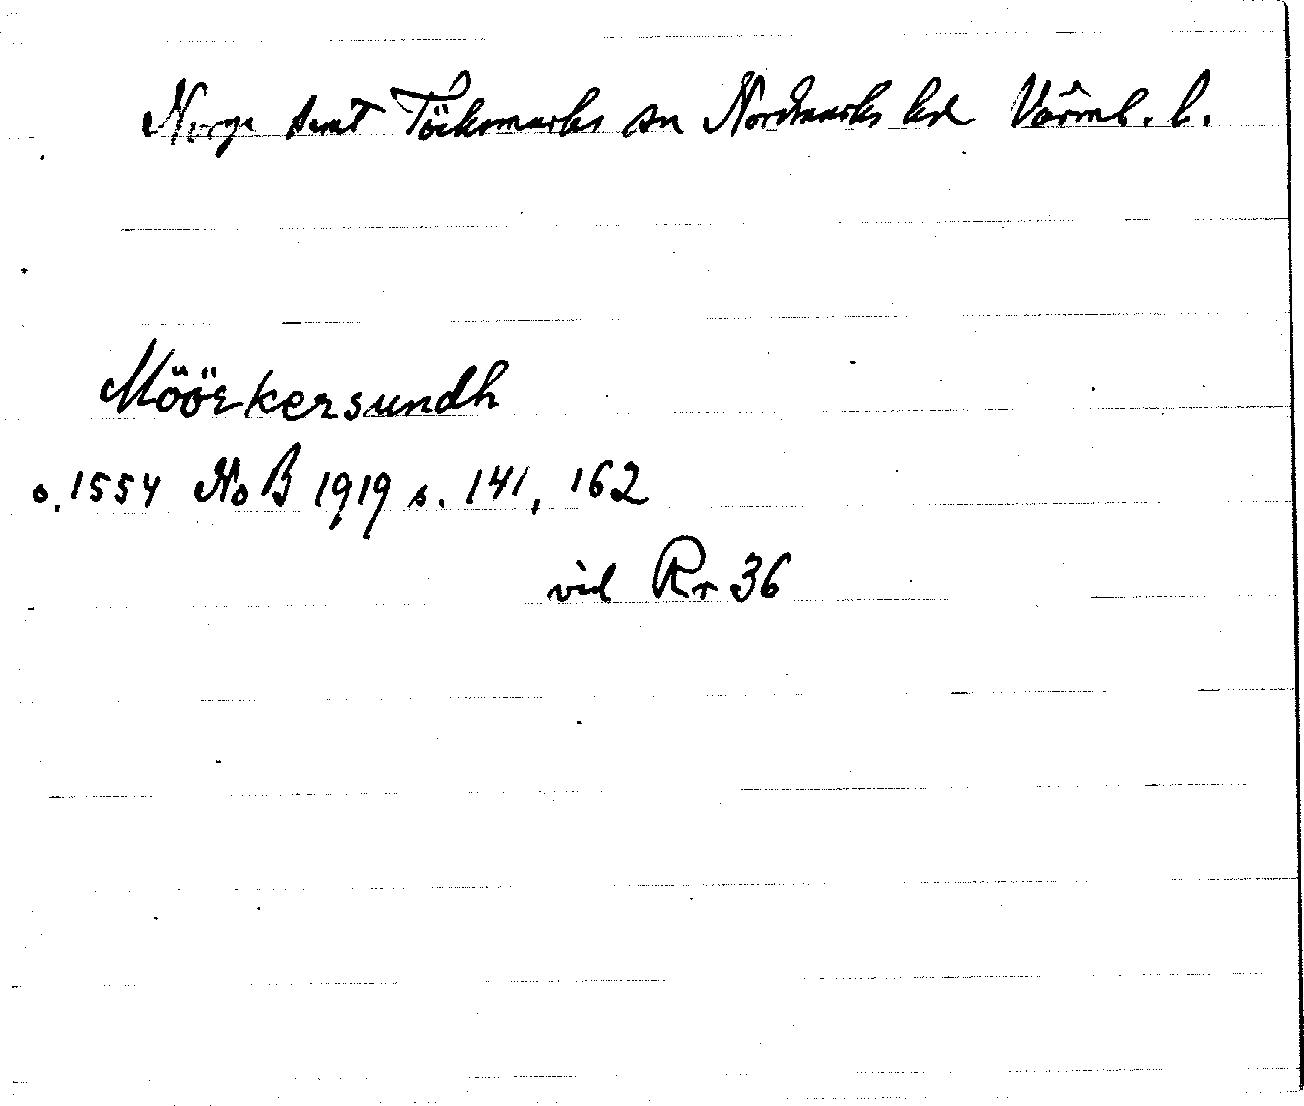 Norge samt Töcksmarks sn Nordmarks hd Värml. l.
Möörkersundh
o. 1554 NoB 1919 s. 141, 162
vid Rr 36